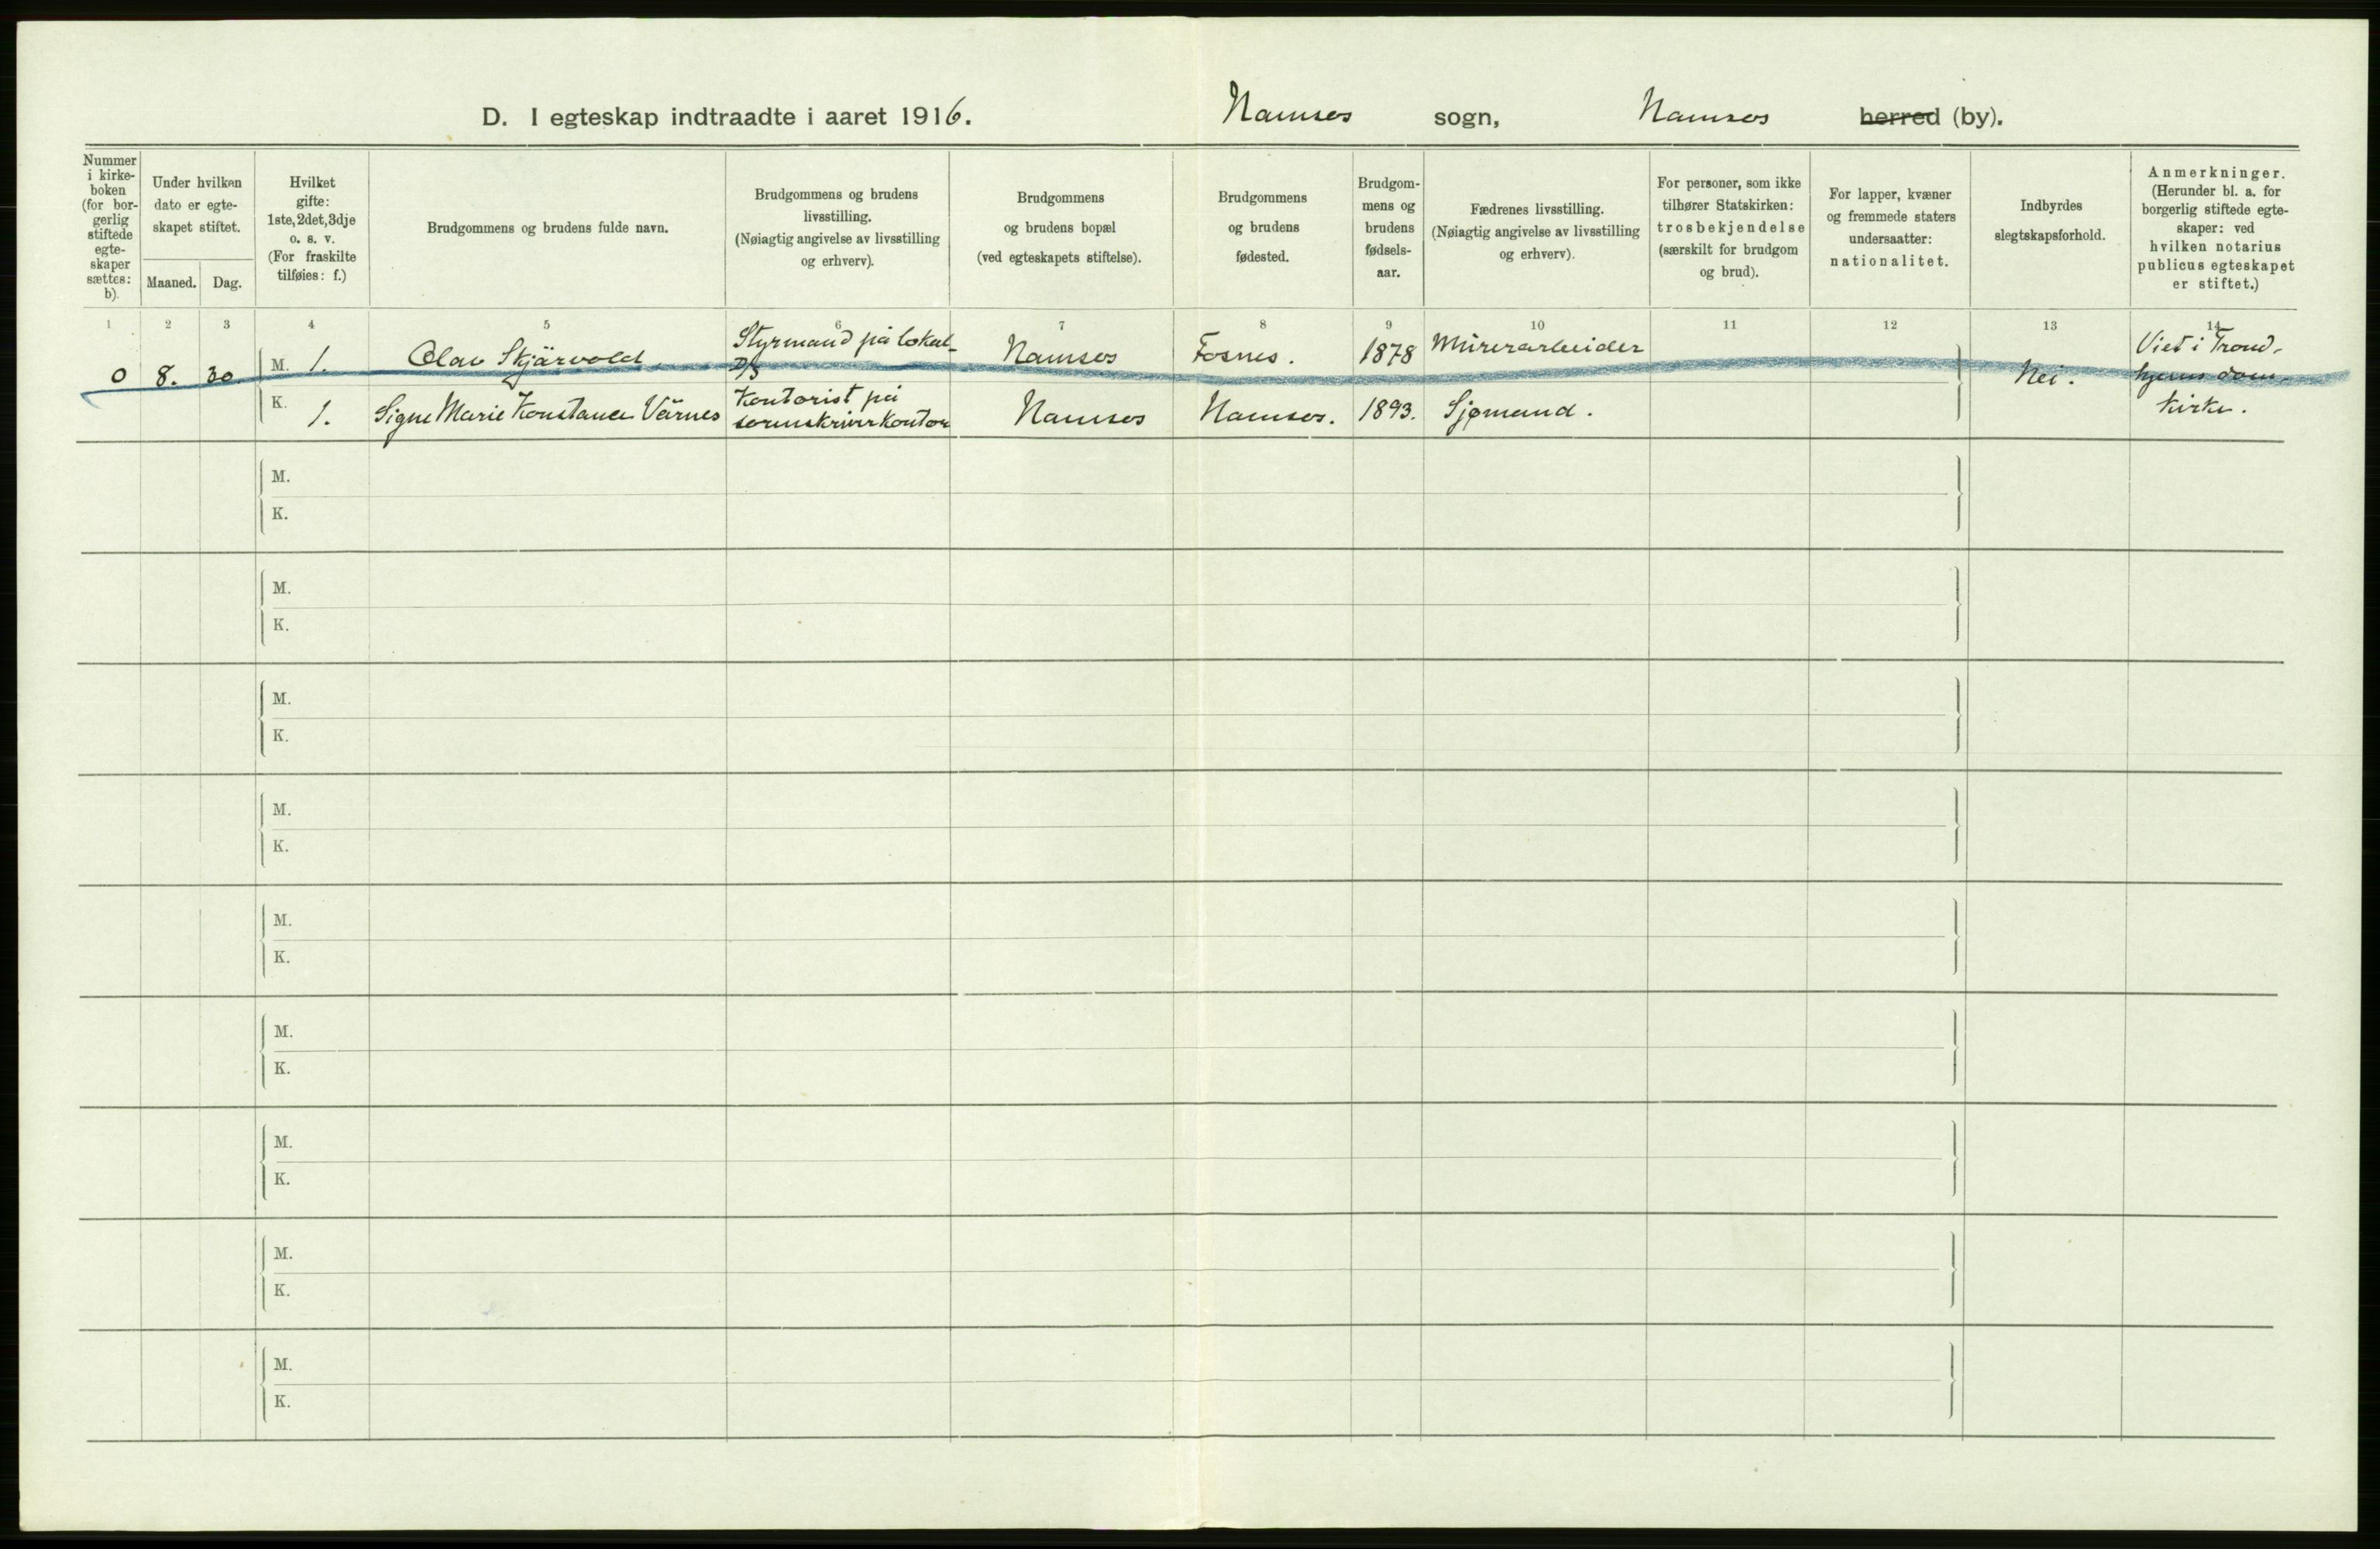 D. I egteskap indtraadte i aaret 1916. Namsos sogn, Namsos herred (by).
Nummer
i kirke-
boken
(for bor-
gerlig
stiftede
egte-
skaper
sættes:
b).
Under hvilken
dato er egte-
skapet stiftet.
Maaned. Dag.
Hvilket
gifte:
1ste, 2det, 3dje
o. s. v.
(For fraskilte
tilføies: f.)
Brudgommens og brudens fulde navn.
Brudgommens og brudens
livsstilling.
(Nøiagtig angivelse av livsstilling
og erhverv).
Brudgommens
og brudens bopæl
(ved egteskapets stiftelse).
Brudgommens
og brudens
fødested.
Brudgom-
mens og
brudens
fødsels-
aar.
Fædrenes livsstilling.
(Nøiagtig angivelse av livsstilling
og erhverv).
For personer, som ikke
tilhører Statskirken:
trosbekjendelse
(særskilt for brudgom
og brud).
For lapper, kvæner
og fremmede staters
undersaatter:
nationalitet.
Indbyrdes
slegtskapsforhold.
Anmerkninger.
(Herunder bl. a. for
borgerlig stiftede egte-
skaper: ved
hvilken notarius
publicus egteskapet
er stiftet.)
1 2 3 4 5 6 7 8 9 10 11 12 13 14
0 8. 30
M. 1. Olav Skjärvold
Styrmand på lokal-
D/S
Namsos Fosnes. 1878 Murerarbeider
K. 1. Signe Marie Konstance Värnes
Kontorist på
sorenskriverkontor
Namsos Namsos. 1893. Sjømand.
Nei.
Viet i Trond-
hjems dom-
kirke.
M.
K.
M.
K.
M.
K.
M.
K.
M.
K.
M.
K.
M.
K.
M.
K.
M.
K.